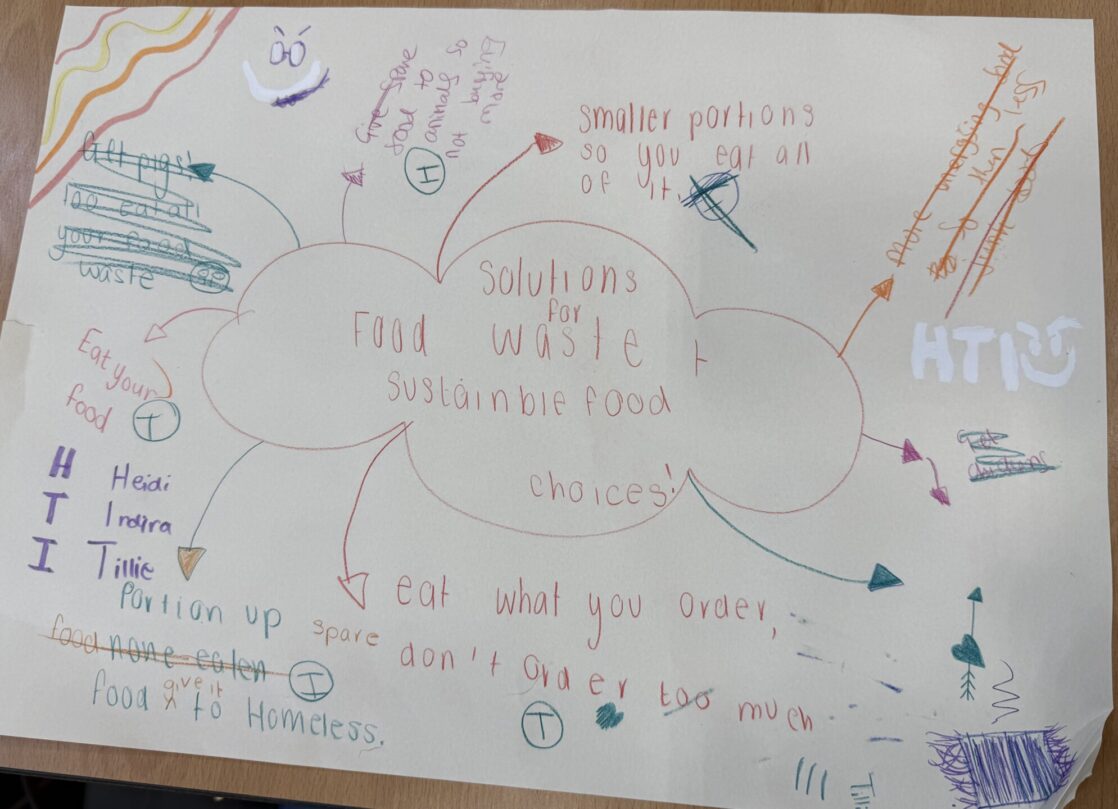 Get pigs!
too eat all
your food
waste
Give spare
food to
animals so
not buying
more
I
smaller portions
so you eat all
of it.
more
food
then less
HTI
solutions
for
Food waste +
sustainble food
choices!
Eat your
food
T
Get
chickens
H Heidi
T Indira
I Tillie
Portion up spare
food none eaten
I
food give it to Homeless.
eat what you order,
don't order too much
T